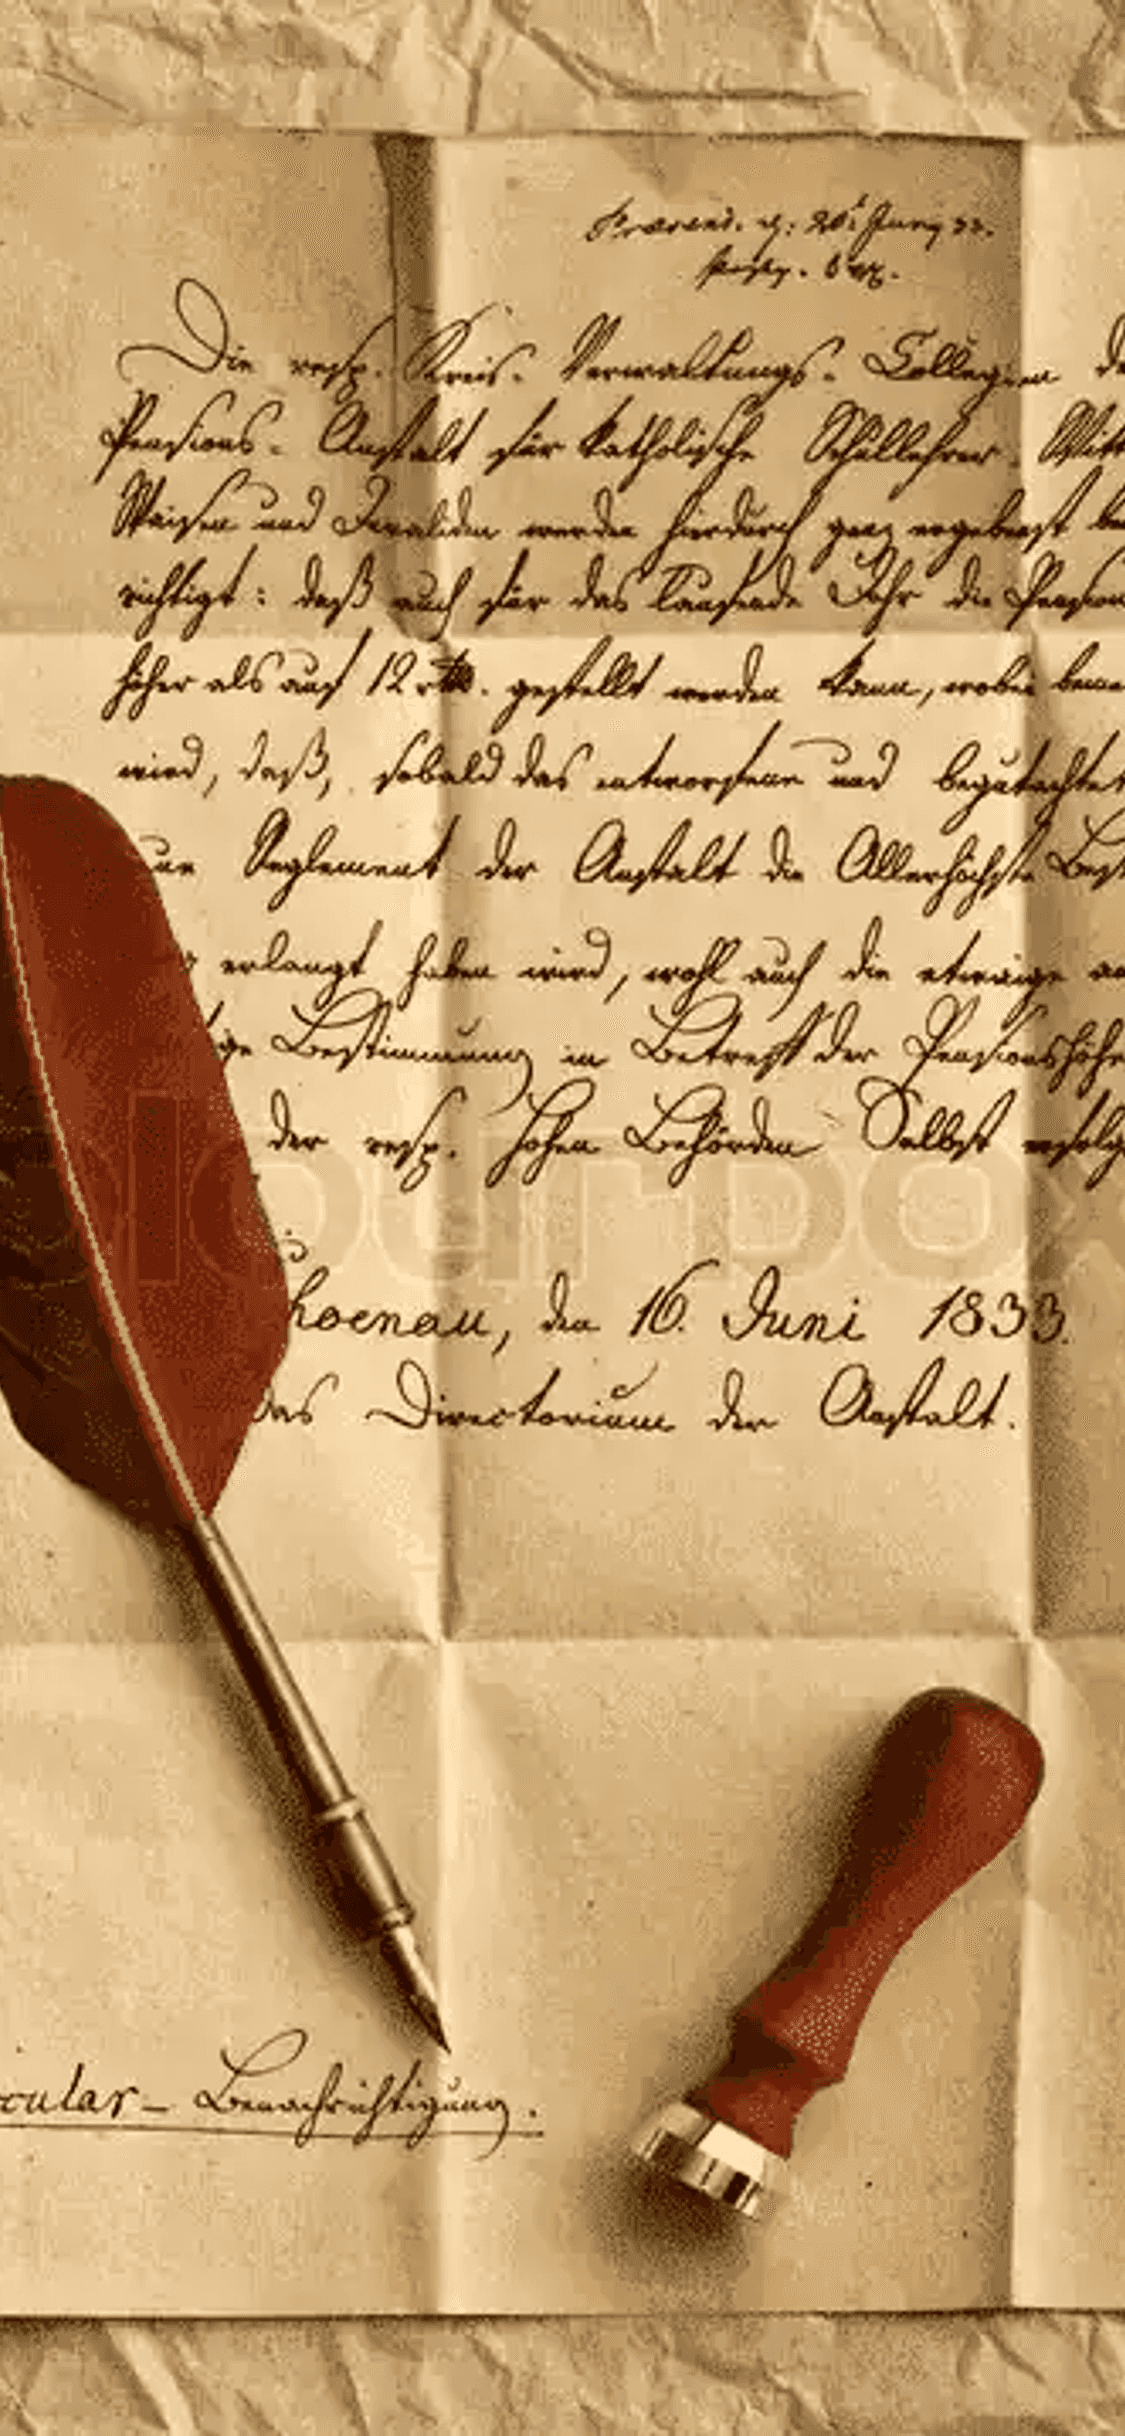 Praesent. d. 20t Juny 33.
Die resp. Kreis- Verwaltungs- Collegien de
Pensions- Anstalt für katholische Schullehrer Witt
Waisen und Invaliden werden hierdurch ganz ergebenst be
richtigt: daß auch für das laufende Jahr die Pension
höher als auf 12 rtl. gestellt werden kann, wobei beme
wird, daß, sobald das entworfene und begutachtet
ue Reglement der Anstalt die Allerhöchste Best
g erlangt haben wird, wohl auch die etwaige an
ge Bestimmung in Betreff der Pensionshöhe
der resp. hohen Behörden Selbst erfolg
hoenau, den 16. Juni 1833.
Das Directorium der Anstalt.
cular- Benachrichtigung.